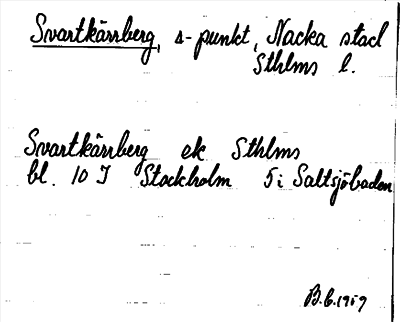 Svartkärrberg, s-punkt, Nacka stad
Sthlms l.
Svartkärrberg ek Sthlms
bl. 10 I Stockholm 5 i Saltsjöbaden
B.C. 1959